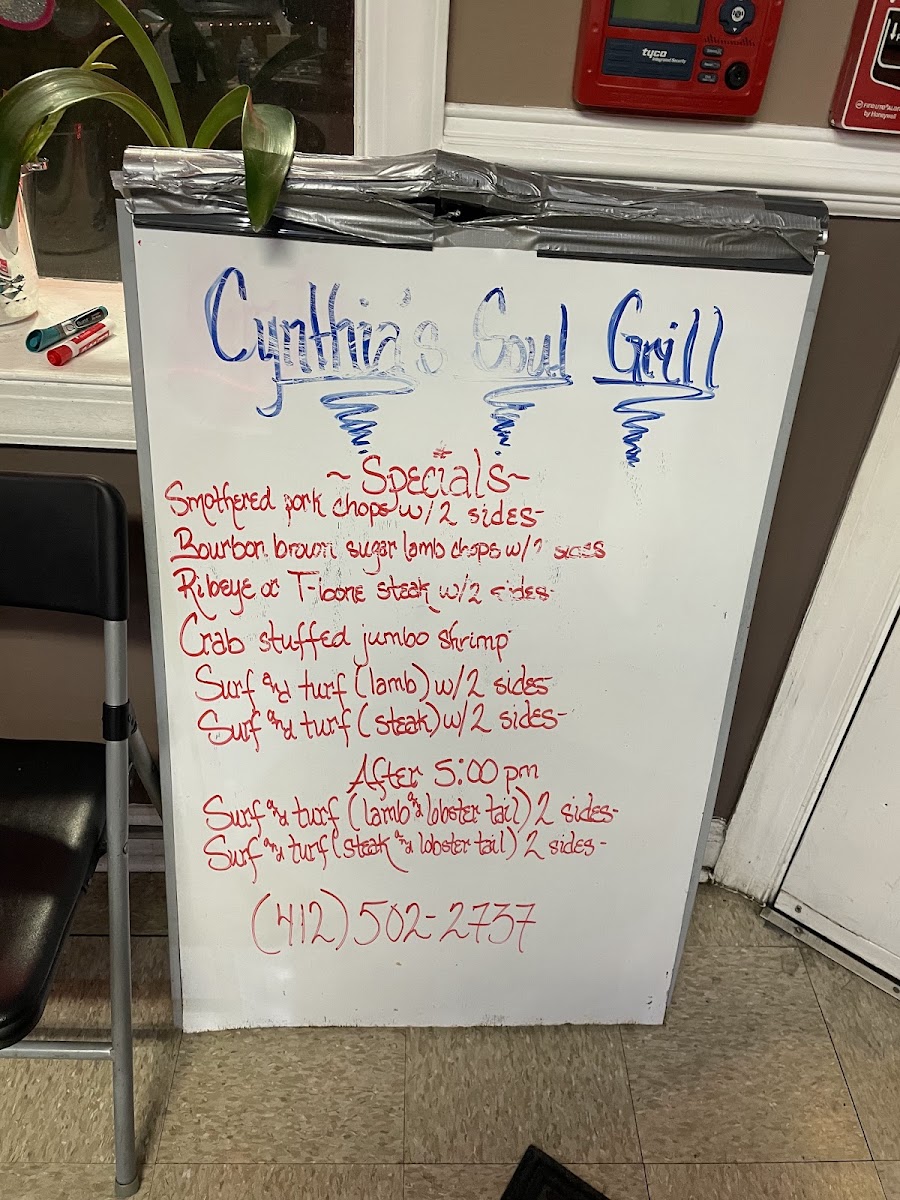 tyco
Integrated Security
by Honeywell
Cynthia's Soul Grill
~Specials~
Smothered pork chops w/2 sides-
Bourbon brown sugar lamb chops w/2 sides
Ribeye or T-bone steak w/2 sides-
Crab stuffed jumbo shrimp
Surf and turf (lamb) w/2 sides-
Surf and turf (steak) w/2 sides-
After 5:00 pm
Surf and turf (lamb and lobster tail) 2 sides-
Surf and turf (steak and lobster tail) 2 sides-
(412) 502-2737